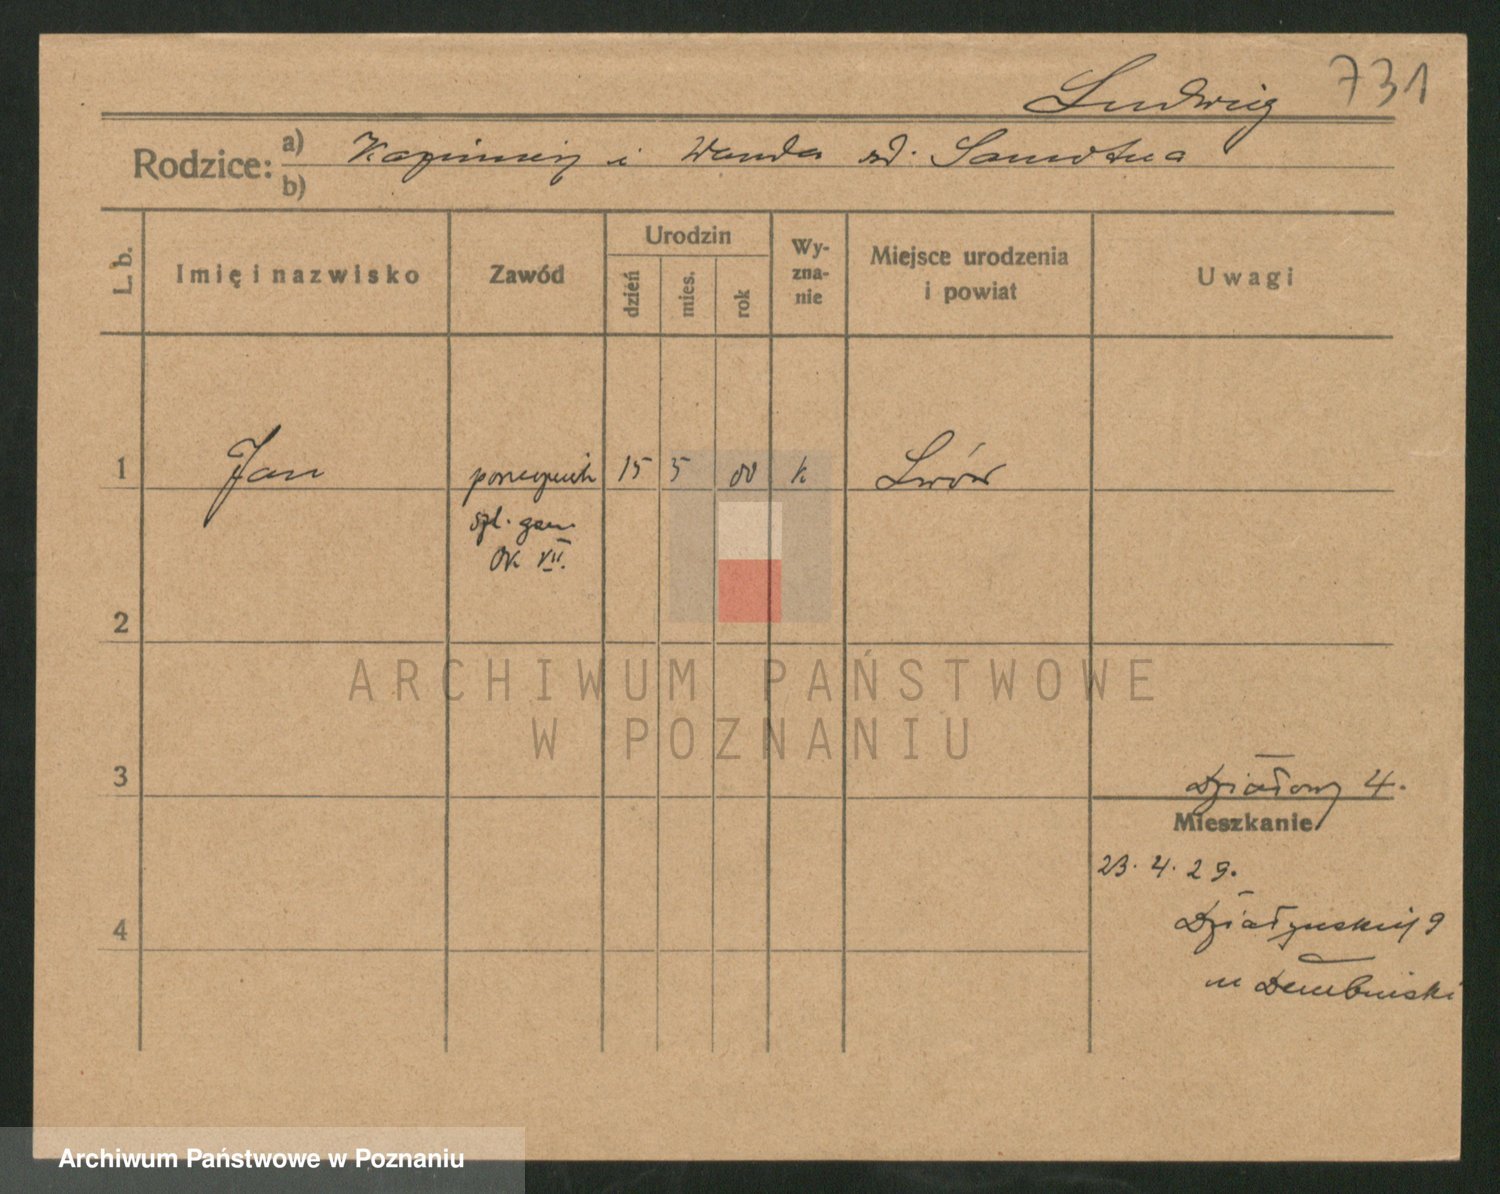 Ludwig 731
Rodzice: a) Kazimierz i Wanda zd. Samotna
b)
L. b. Imię i nazwisko Zawód Urodzin dzień mies. rok Wy-zna-nie Miejsce urodzenia i powiat Uwagi
1 Jan porucznik 15 5 00 k Lwów
szl. gen.
OK VII.
2
ARCHIWUM PAŃSTWOWE
W POZNANIU
3 Działowy 4.
Mieszkanie
23. 4. 29.
4 Działyńskich 9
m Dembiński
Archiwum Państwowe w Poznaniu